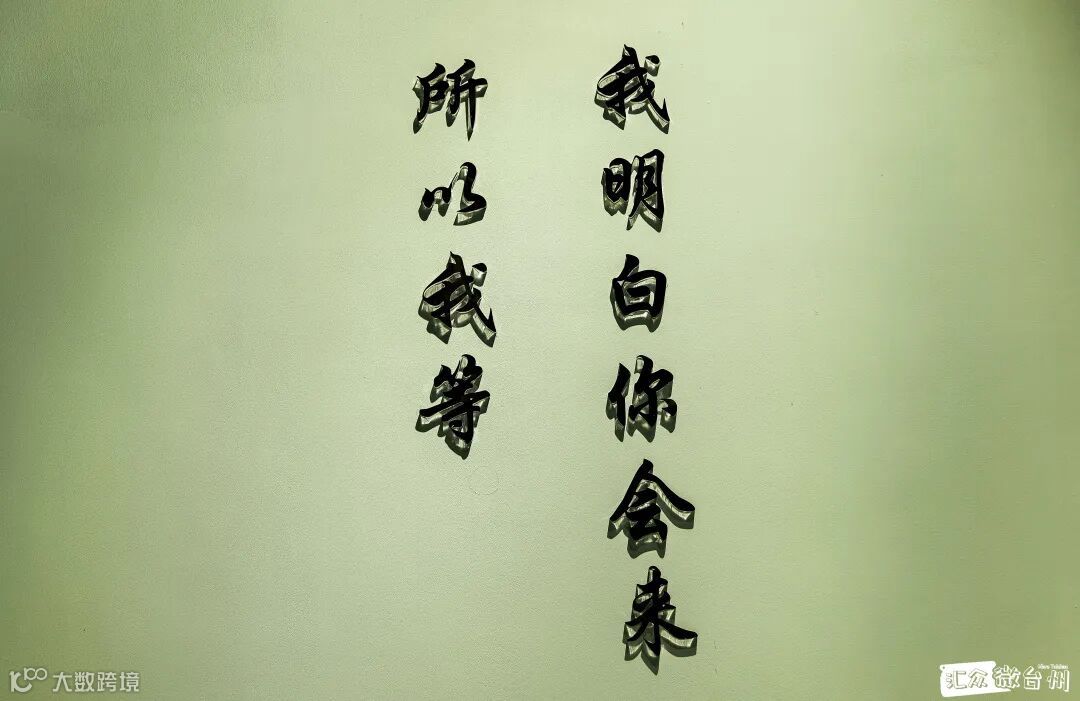 我明白你会来
所以我等
大数跨境
汇众微台州